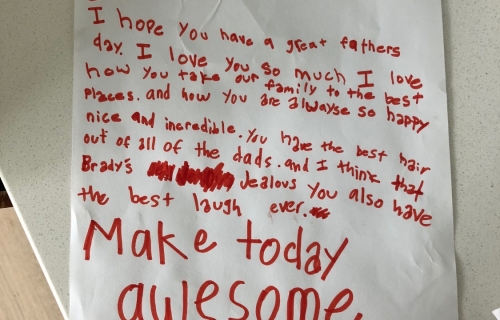 I hope you have a great fathers
day. I love you so much I love
how you take our family to the best
Places. and how you are alwayse so happy
nice and incredible. You have the best hair
out of all of the dads. and I think that
Brady's Jealous you also have
the best laugh ever.
Make today
awesome